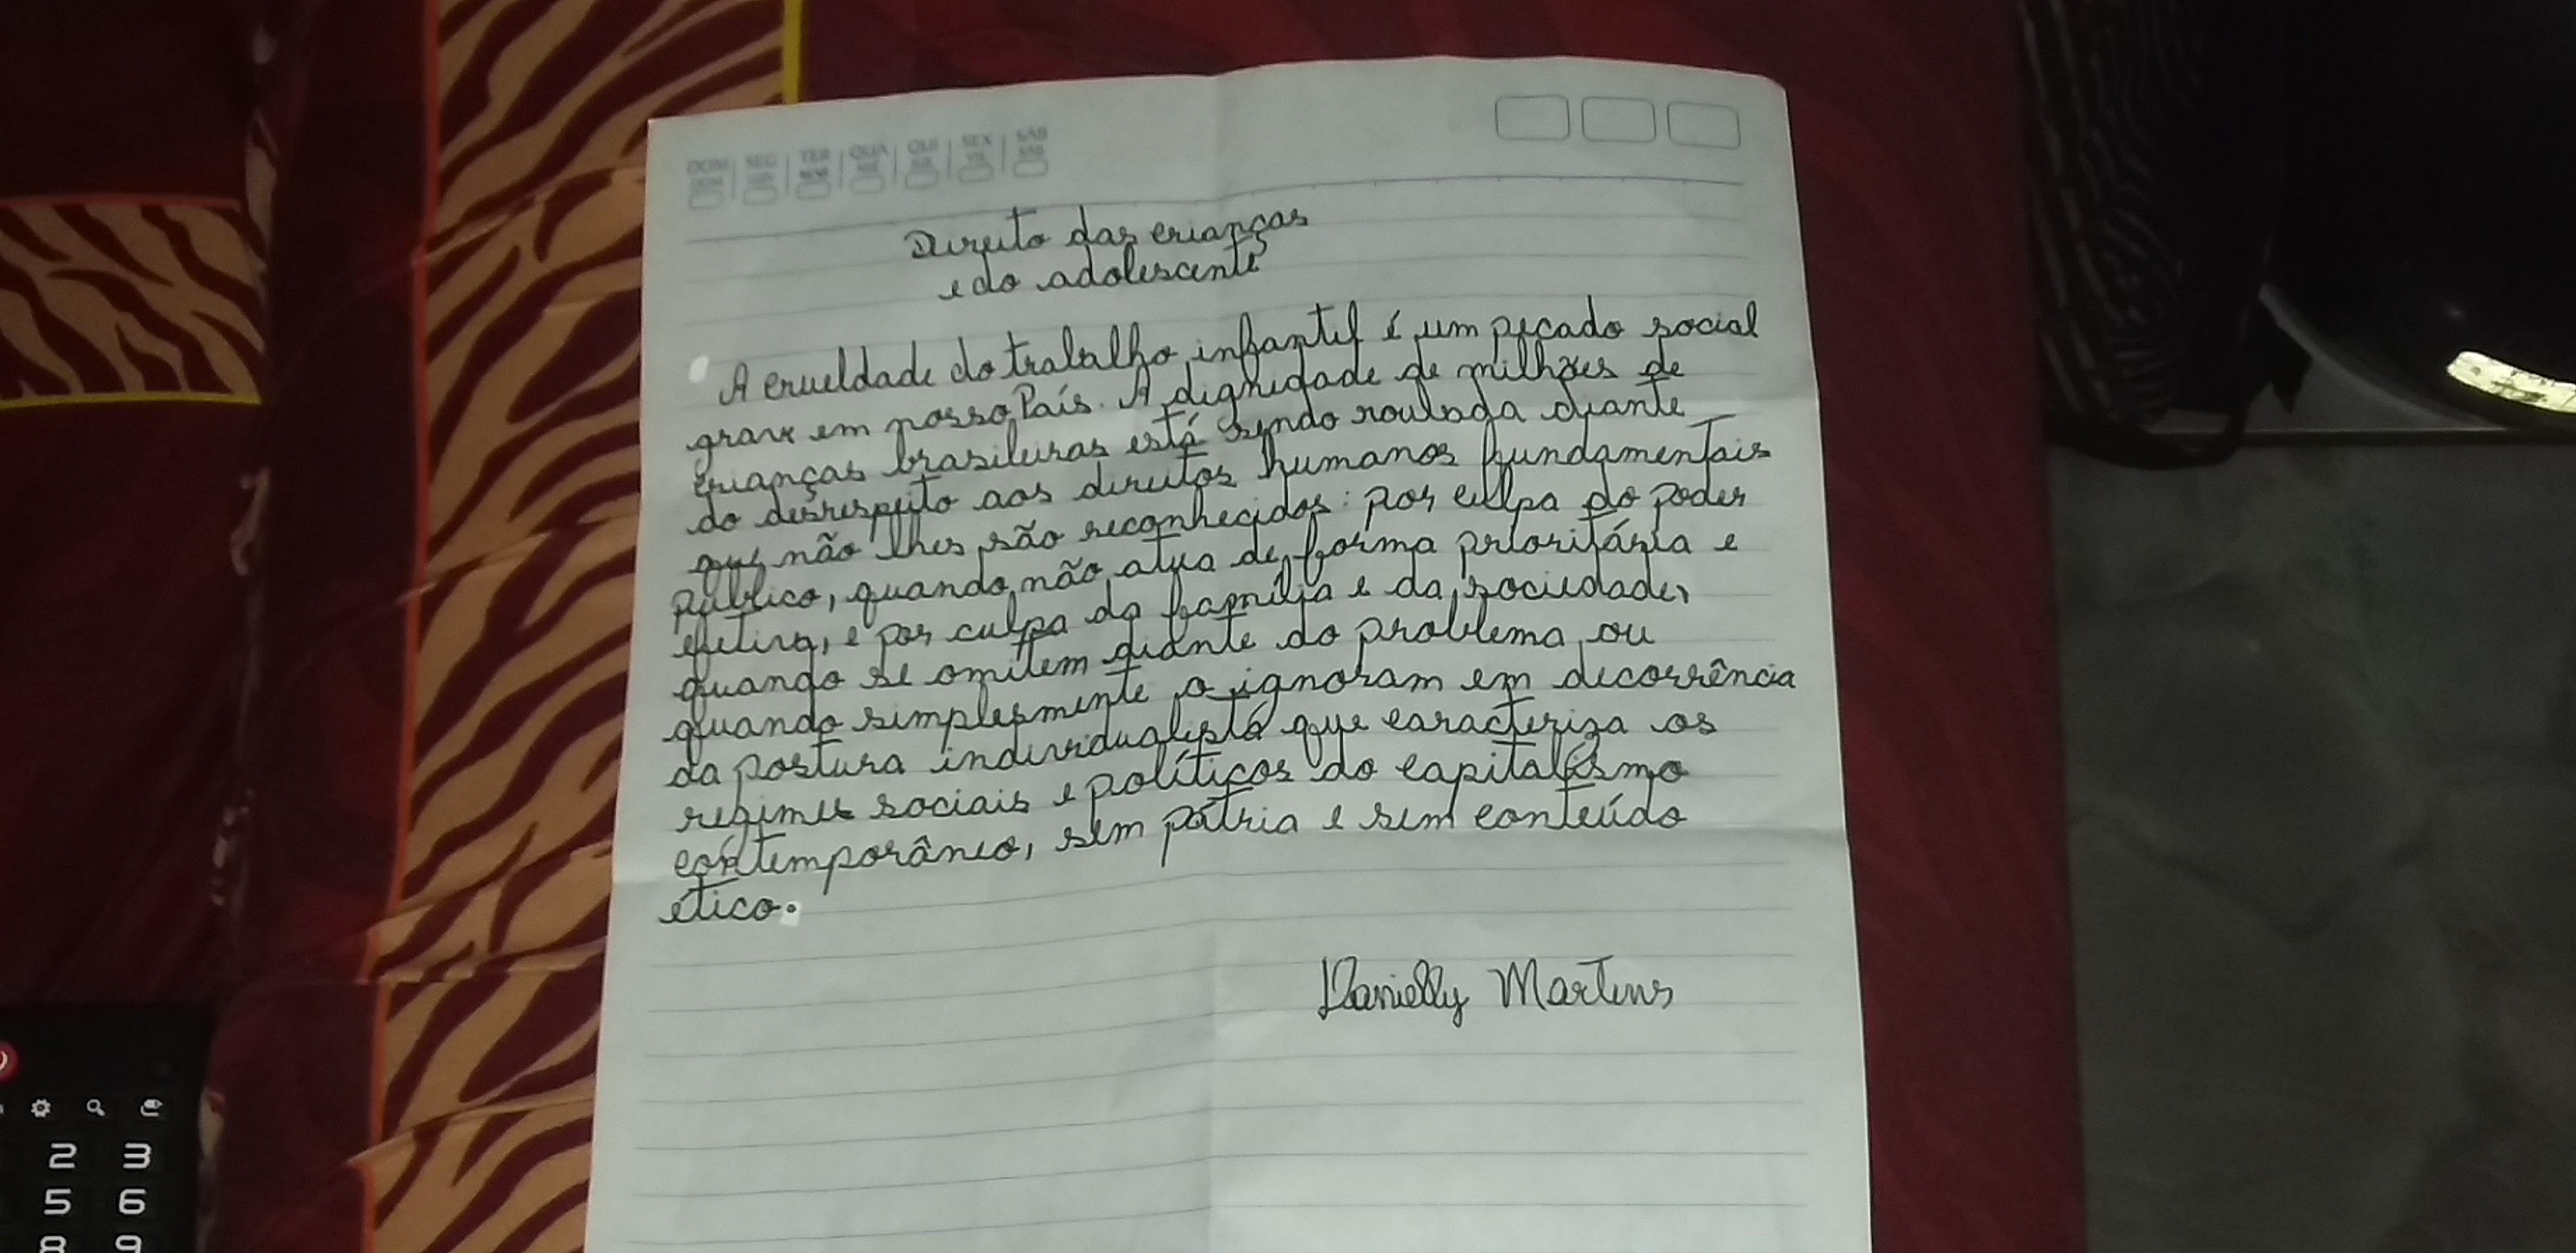 DOM SEG TER QUA QUI SEX SÁB
Direito das crianças
e do adolescente
A crueldade do trabalho infantil é um pecado social
grave em nosso País. A dignidade de milhões de
crianças brasileiras está sendo roubada diante
do desrespeito aos direitos humanos fundamentais
que não lhes são reconhecidos: por culpa do poder
público, quando não atua de forma prioritária e
efetiva, e por culpa da família e da sociedade,
quando se omitem diante do problema ou
quando simplesmente o ignoram em decorrência
da postura individualista que caracteriza os
regimes sociais e políticos do capitalismo
contemporâneo, sem pátria e sem conteúdo
ético.
Danielly Martins
2 3
5 6
8 9